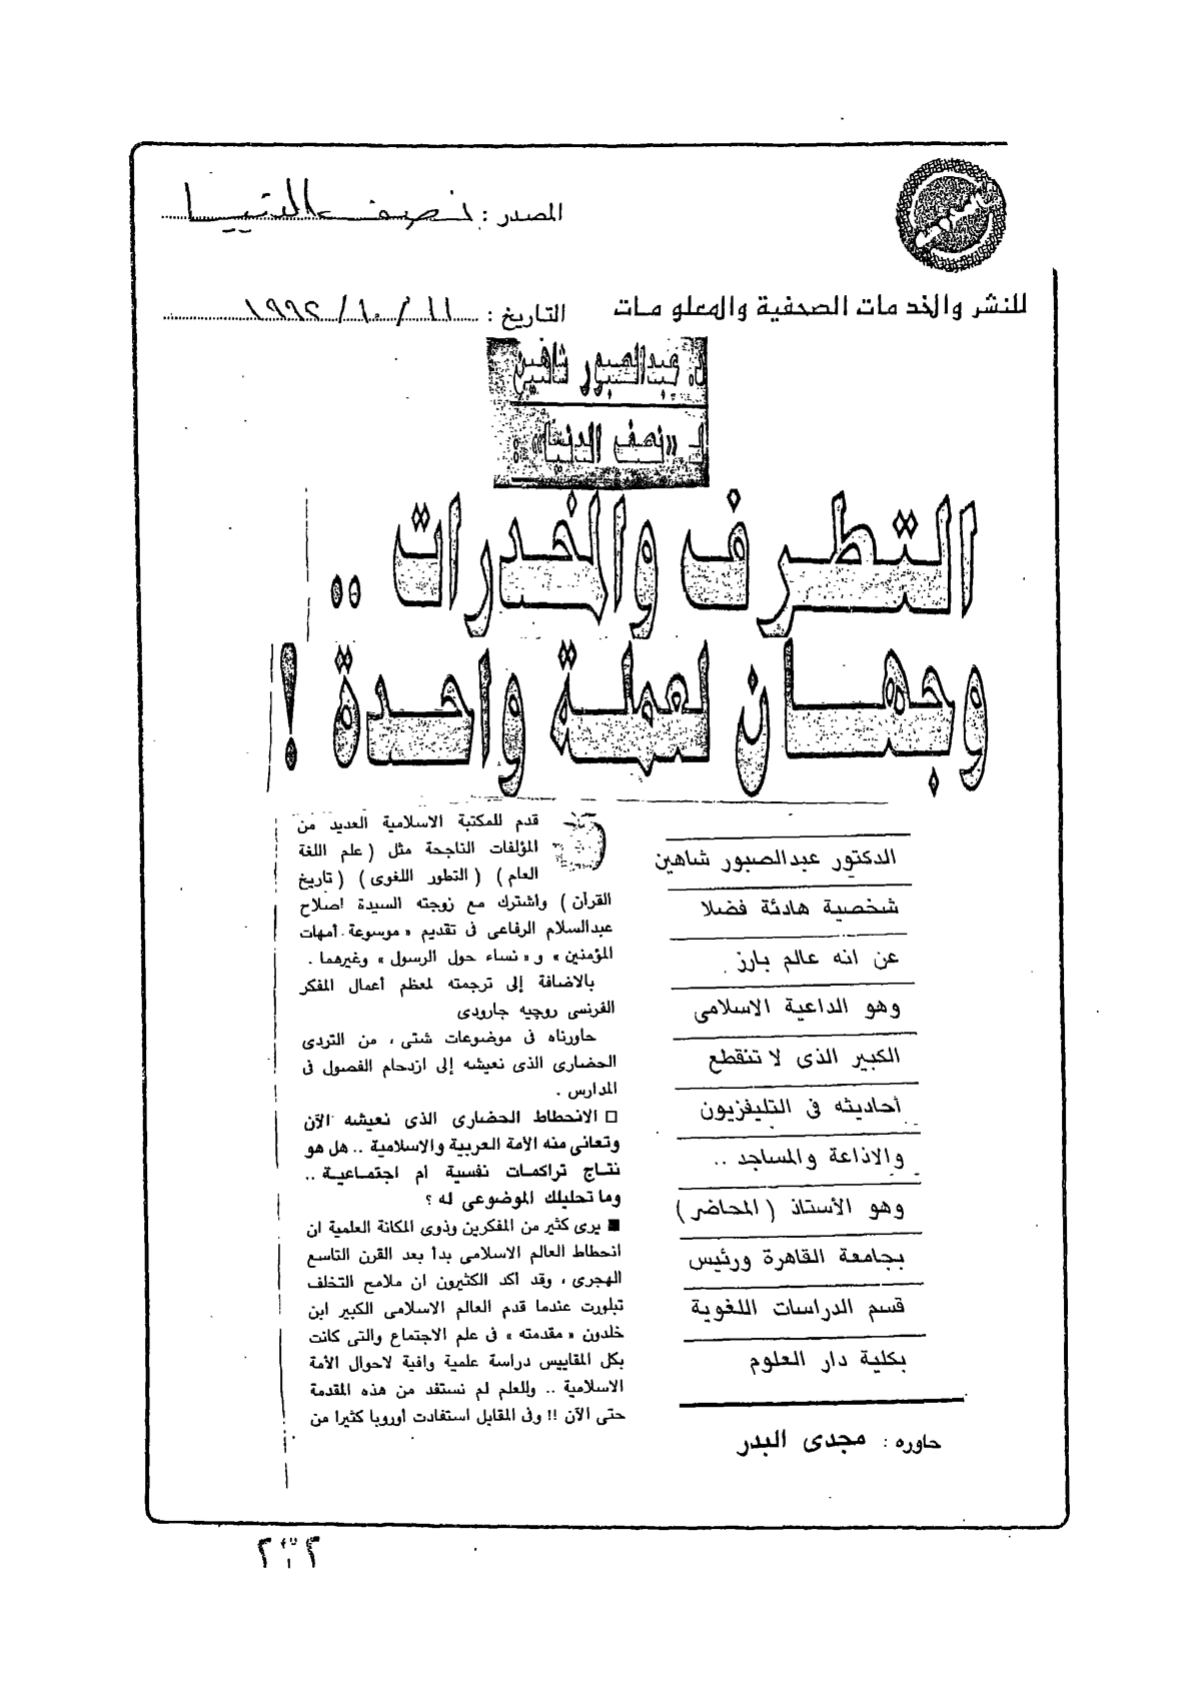 المصدر : نصف الدنيا
للنشر والخدمات الصحفية والمعلومات
التاريخ : ١١ / ١٠ / ١٩٩٢
د. عبدالصبور شاهين
لـ «نصف الدنيا» :
التطرف والمخدرات ..
وجهان لعملة واحدة !
الدكتور عبدالصبور شاهين
شخصية هادئة فضلا
عن انه عالم بارز .
وهو الداعية الاسلامى
الكبير الذى لا تنقطع
أحاديثه فى التليفزيون
والاذاعة والمساجد ..
وهو الأستاذ ( المحاضر )
بجامعة القاهرة ورئيس
قسم الدراسات اللغوية
بكلية دار العلوم
حاوره : مجدى البدر
قدم للمكتبة الاسلامية العديد من
المؤلفات الناجحة مثل ( علم اللغة
العام ) ( التطور اللغوى ) ( تاريخ
القرآن ) واشترك مع زوجته السيدة اصلاح
عبدالسلام الرفاعى فى تقديم « موسوعة أمهات
المؤمنين » و « نساء حول الرسول » وغيرهما .
بالاضافة إلى ترجمته لمعظم أعمال المفكر
الفرنسى روجيه جارودى
حاورناه فى موضوعات شتى ، من التردى
الحضارى الذى نعيشه إلى ازدحام الفصول فى
المدارس .
□ الانحطاط الحضارى الذى نعيشه الآن
وتعانى منه الأمة العربية والاسلامية .. هل هو
نتاج تراكمات نفسية أم اجتماعية ..
وما تحليلك الموضوعى له ؟
■ يرى كثير من المفكرين وذوى المكانة العلمية ان
انحطاط العالم الاسلامى بدأ بعد القرن التاسع
الهجرى ، وقد اكد الكثيرون ان ملامح التخلف
تبلورت عندما قدم العالم الاسلامى الكبير ابن
خلدون « مقدمته » فى علم الاجتماع والتى كانت
بكل المقاييس دراسة علمية وافية لاحوال الأمة
الاسلامية .. وللعلم لم نستفد من هذه المقدمة
حتى الآن !! وفى المقابل استفادت أوروبا كثيرا من